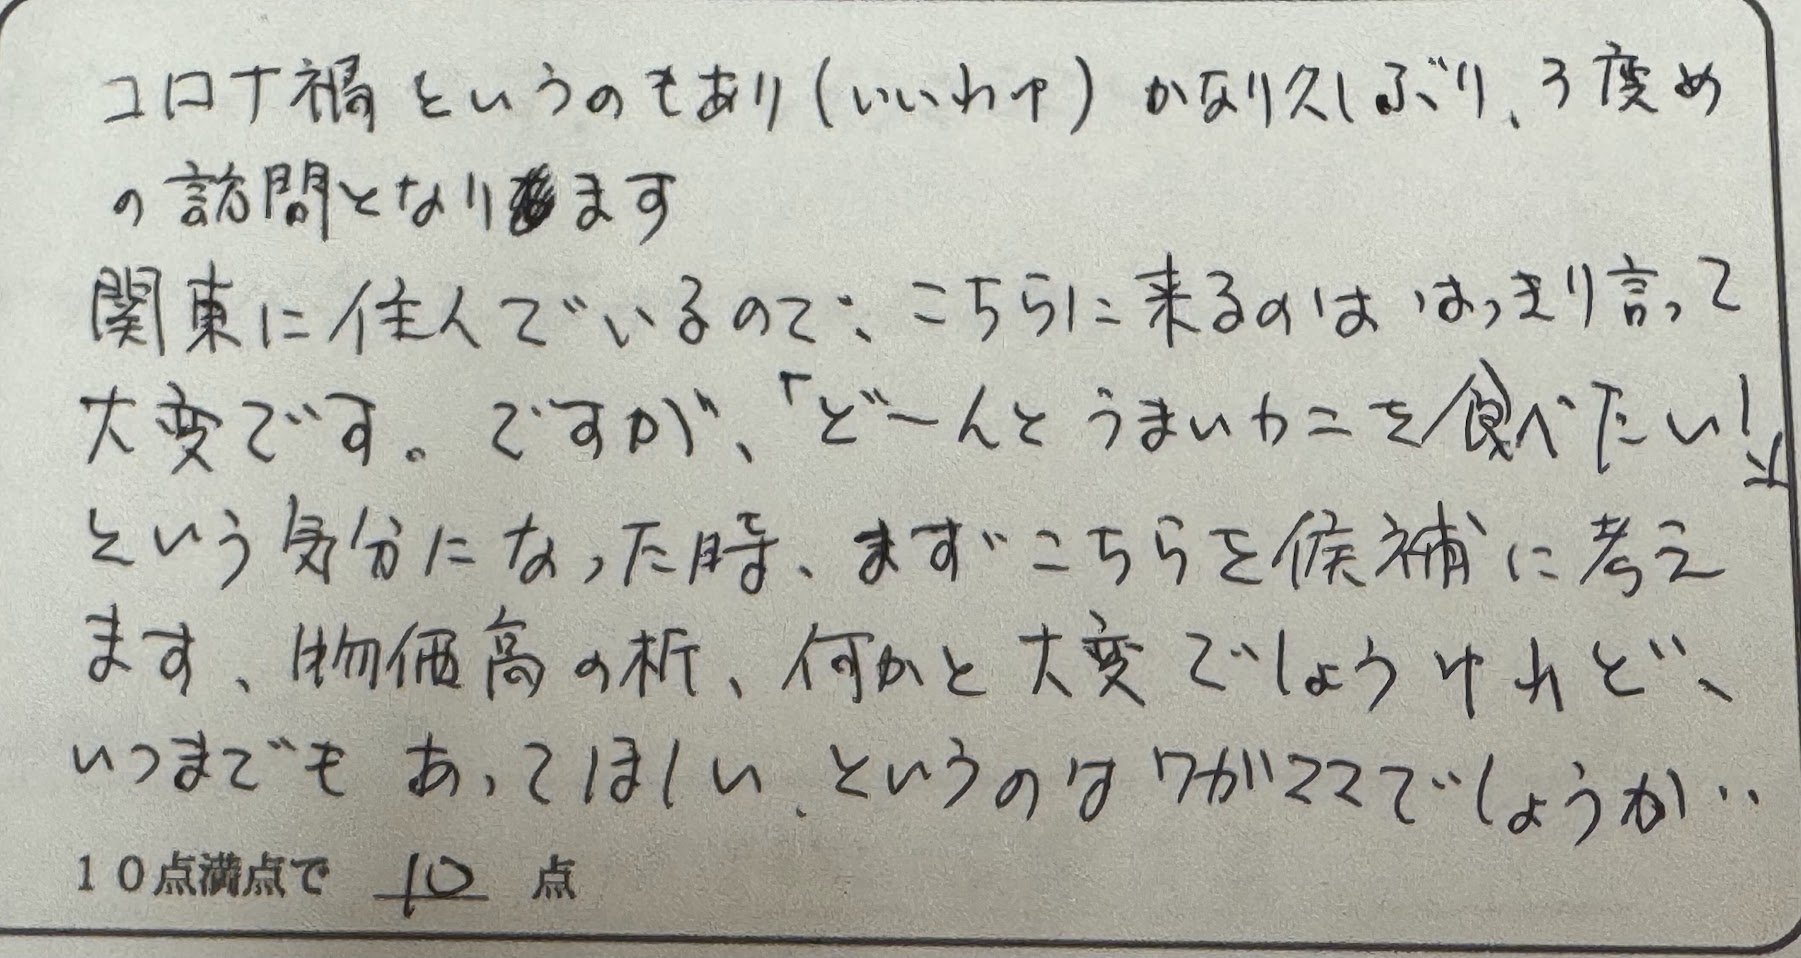 コロナ禍というのもあり(いいわけ)かなり久しぶり、3度め
の訪問となります
関東に住んでいるので、こちらに来るのははっきり言って
大変です。ですが、「どーんとうまいカニを食べたい!」
という気分になった時、まずこちらを候補に考え
ます、物価高の折、何かと大変でしょうけれど、
いつまでもあってほしい、というのはワガママでしょうか‥
10点満点で 10 点